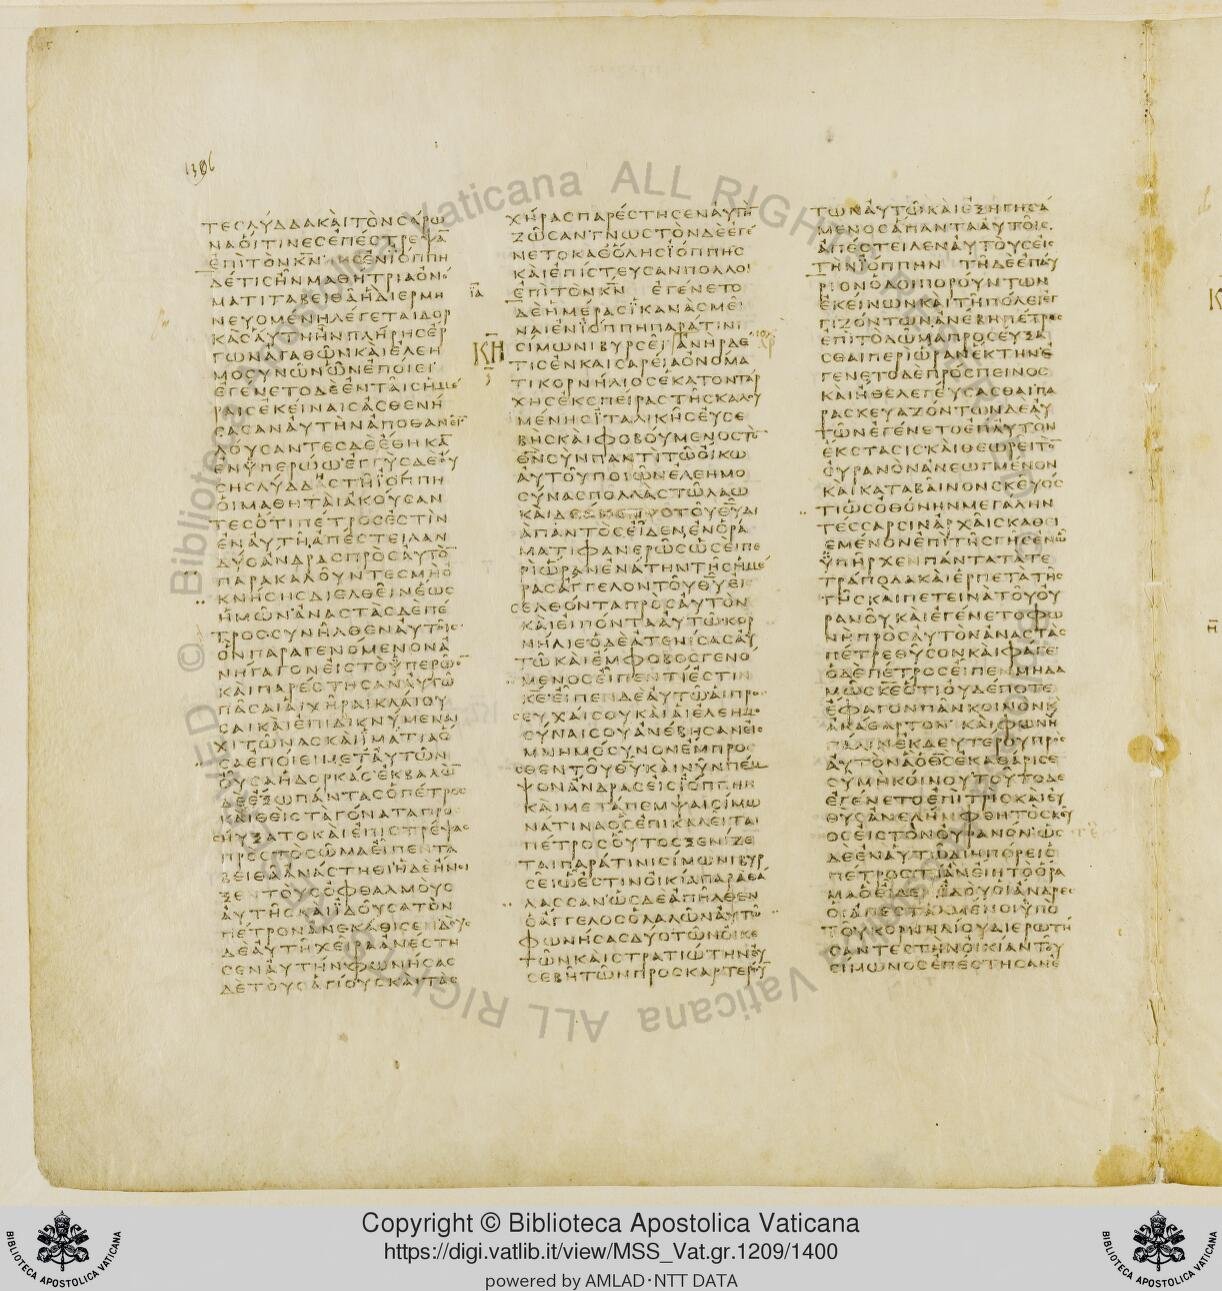 1396
ΤΕΣΛΥΔΔΑΚΑΙΤΟΝΣΑΡΩ
ΝΑΟΙΤΙΝΕΣΕΠΕΣΤΡΕΨΑ
ΕΠΙΤΟΝΚΝ ΕΝΙΟΠΠΗ
ΔΕΤΙΣΗΝΜΑΘΗΤΡΙΑΟΝΟ
ΜΑΤΙΤΑΒΕΙΘΑΗΔΙΕΡΜΗ
ΝΕΥΟΜΕΝΗΛΕΓΕΤΑΙΔΟΡ
ΚΑΣΑΥΤΗΗΝΠΛΗΡΗΣΕΡ
ΓΩΝΑΓΑΘΩΝΚΑΙΕΛΕΗ
ΜΟΣΥΝΩΝΩΝΕΠΟΙΕΙ
ΕΓΕΝΕΤΟΔΕΕΝΤΑΙΣΗΜΕ
ΡΑΙΣΕΚΕΙΝΑΙΣΑΣΘΕΝΗ
ΣΑΣΑΝΑΥΤΗΝΑΠΟΘΑΝΕΙ
ΛΟΥΣΑΝΤΕΣΔΕΕΘΗΚΑ
ΕΝΥΠΕΡΩΩΕΓΓΥΣΔΕΟΥ
ΣΗΣΛΥΔΔΑΣΤΗΙΟΠΠΗ
ΟΙΜΑΘΗΤΑΙΑΚΟΥΣΑΝ
ΤΕΣΟΤΙΠΕΤΡΟΣΕΣΤΙΝ
ΕΝΑΥΤΗΑΠΕΣΤΕΙΛΑΝ
ΔΥΟΑΝΔΡΑΣΠΡΟΣΑΥΤΟ
ΠΑΡΑΚΑΛΟΥΝΤΕΣΜΗΟ
ΚΝΗΣΗΣΔΙΕΛΘΕΙΝΕΩΣ
ΗΜΩΝΑΝΑΣΤΑΣΔΕΠΕ
ΤΡΟΣΣΥΝΗΛΘΕΝΑΥΤΟΙΣ
ΟΝΠΑΡΑΓΕΝΟΜΕΝΟΝΑ
ΝΗΓΑΓΟΝΕΙΣΤΟΥΠΕΡΩΟ
ΚΑΙΠΑΡΕΣΤΗΣΑΝΑΥΤΩ
ΠΑΣΑΙΑΙΧΗΡΑΙΚΛΑΙΟΥ
ΣΑΙΚΑΙΕΠΙΔΙΚΝΥΜΕΝΑΙ
ΧΙΤΩΝΑΣΚΑΙΙΜΑΤΙΑΟ
ΣΑΕΠΟΙΕΙΜΕΤΑΥΤΩΝ
ΟΥΣΑΗΔΟΡΚΑΣΕΚΒΑΛΩ
ΔΕΕΞΩΠΑΝΤΑΣΟΠΕΤΡΟΣ
ΚΑΙΘΕΙΣΤΑΓΟΝΑΤΑΠΡΟ
ΣΗΥΞΑΤΟΚΑΙΕΠΙΣΤΡΕΨΑΣ
ΠΡΟΣΤΟΣΩΜΑΕΙΠΕΝΤΑ
ΒΕΙΘΑΑΝΑΣΤΗΘΙΗΔΕΗΝΟΙ
ΞΕΝΤΟΥΣΟΦΘΑΛΜΟΥΣ
ΑΥΤΗΣΚΑΙΙΔΟΥΣΑΤΟΝ
ΠΕΤΡΟΝΑΝΕΚΑΘΙΣΕΝΔΟΥΣ
ΔΕΑΥΤΗΧΕΙΡΑΑΝΕΣΤΗ
ΣΕΝΑΥΤΗΝΦΩΝΗΣΑΣ
ΔΕΤΟΥΣΑΓΙΟΥΣΚΑΙΤΑΣ
ΧΗΡΑΣΠΑΡΕΣΤΗΣΕΝΑΥΤΗ
ΖΩΣΑΝΓΝΩΣΤΟΝΔΕΕΓΕ
ΝΕΤΟΚΑΘΟΛΗΣΙΟΠΠΗΣ
ΚΑΙΕΠΙΣΤΕΥΣΑΝΠΟΛΛΟΙ
ΕΠΙΤΟΝΚΝ ΕΓΕΝΕΤΟ
ΙΑ
ΔΕΗΜΕΡΑΣΙΚΑΝΑΣΜΕΙ
ΝΑΙΕΝΙΟΠΠΗΠΑΡΑΤΙΝΙ
ΚΗ
ΣΙΜΩΝΙΒΥΡΣΕΙ ΑΝΗΡΔΕ
ΤΙΣΕΝΚΑΙΣΑΡΕΙΑΟΝΟΜΑ
ΤΙΚΟΡΝΗΛΙΟΣΕΚΑΤΟΝΤΑΡ
ΧΗΣΕΚΣΠΕΙΡΑΣΤΗΣΚΑΛΟΥ
ΜΕΝΗΣΙΤΑΛΙΚΗΣΕΥΣΕ
ΒΗΣΚΑΙΦΟΒΟΥΜΕΝΟΣΤΟ
ΘΝΣΥΝΠΑΝΤΙΤΩΟΙΚΩ
ΑΥΤΟΥΠΟΙΩΝΕΛΕΗΜΟ
ΣΥΝΑΣΠΟΛΛΑΣΤΩΛΑΩ
ΚΑΙΔΕΟΜΕΝΟΣΤΟΥΘΥΑΙ
ΑΠΑΝΤΟΣΕΙΔΕΝΕΝΟΡΑ
ΜΑΤΙΦΑΝΕΡΩΣΩΣΕΙΠΕ
ΡΙΩΡΑΝΕΝΑΤΗΝΤΗΣΗΜΕ
ΡΑΣΑΓΓΕΛΟΝΤΟΥΘΥΕΙ
ΣΕΛΘΟΝΤΑΠΡΟΣΑΥΤΟΝ
ΚΑΙΕΙΠΟΝΤΑΑΥΤΩΚΟΡ
ΝΗΛΙΕΟΔΕΑΤΕΝΙΣΑΣΑΥ
ΤΩΚΑΙΕΜΦΟΒΟΣΓΕΝΟ
ΜΕΝΟΣΕΙΠΕΝΤΙΕΣΤΙΝ
ΚΕΕΙΠΕΝΔΕΑΥΤΩΑΙΠΡΟ
ΣΕΥΧΑΙΣΟΥΚΑΙΑΙΕΛΕΗΜΟ
ΣΥΝΑΙΣΟΥΑΝΕΒΗΣΑΝΕΙΣ
ΜΝΗΜΟΣΥΝΟΝΕΜΠΡΟΣ
ΘΕΝΤΟΥΘΥΚΑΙΝΥΝΠΕΜ
ΨΟΝΑΝΔΡΑΣΕΙΣΙΟΠΠΗΝ
ΚΑΙΜΕΤΑΠΕΜΨΑΙΣΙΜΩ
ΝΑΤΙΝΑΟΣΕΠΙΚΑΛΕΙΤΑΙ
ΠΕΤΡΟΣΟΥΤΟΣΞΕΝΙΖΕ
ΤΑΙΠΑΡΑΤΙΝΙΣΙΜΩΝΙΒΥΡ
ΣΕΙΩΕΣΤΙΝΟΙΚΙΑΠΑΡΑΘΑ
ΛΑΣΣΑΝΩΣΔΕΑΠΗΛΘΕΝ
ΟΑΓΓΕΛΟΣΟΛΑΛΩΝΑΥΤΩ
ΦΩΝΗΣΑΣΔΥΟΤΩΝΟΙΚΕ
ΤΩΝΚΑΙΣΤΡΑΤΙΩΤΗΝΕΥ
ΣΕΒΗΤΩΝΠΡΟΣΚΑΡΤΕΡΟΥ
ΤΩΝΑΥΤΩΚΑΙΕΞΗΓΗΣΑ
ΜΕΝΟΣΑΠΑΝΤΑΑΥΤΟΙΣ
ΑΠΕΣΤΕΙΛΕΝΑΥΤΟΥΣΕΙΣ
ΤΗΝΙΟΠΠΗΝ ΤΗΔΕΕΠΑΥ
ΡΙΟΝΟΔΟΙΠΟΡΟΥΝΤΩΝ
ΕΚΕΙΝΩΝΚΑΙΤΗΠΟΛΕΙΕΓ
ΓΙΖΟΝΤΩΝΑΝΕΒΗΠΕΤΡΟΣ
ΕΠΙΤΟΔΩΜΑΠΡΟΣΕΥΞΑ
ΣΘΑΙΠΕΡΙΩΡΑΝΕΚΤΗΝΕ
ΓΕΝΕΤΟΔΕΠΡΟΣΠΕΙΝΟΣ
ΚΑΙΗΘΕΛΕΓΕΥΣΑΣΘΑΙΠΑ
ΡΑΣΚΕΥΑΖΟΝΤΩΝΔΕΑΥ
ΤΩΝΕΓΕΝΕΤΟΕΠΑΥΤΟΝ
ΕΚΣΤΑΣΙΣΚΑΙΘΕΩΡΕΙΤΟ
ΟΥΡΑΝΟΝΑΝΕΩΓΜΕΝΟΝ
ΚΑΙΚΑΤΑΒΑΙΝΟΝΣΚΕΥΟΣ
ΤΙΩΣΟΘΟΝΗΝΜΕΓΑΛΗΝ
ΤΕΣΣΑΡΣΙΝΑΡΧΑΙΣΚΑΘΕΙ
ΕΜΕΝΟΝΕΠΙΤΗΣΓΗΣΕΝΩ
ΥΠΗΡΧΕΝΠΑΝΤΑΤΑΤΕ
ΤΡΑΠΟΔΑΚΑΙΕΡΠΕΤΑΤΗΣ
ΓΗΣΚΑΙΠΕΤΕΙΝΑΤΟΥΟΥ
ΡΑΝΟΥΚΑΙΕΓΕΝΕΤΟΦΩ
ΝΗΠΡΟΣΑΥΤΟΝΑΝΑΣΤΑΣ
ΠΕΤΡΕΘΥΣΟΝΚΑΙΦΑΓΕ
ΟΔΕΠΕΤΡΟΣΕΙΠΕΝΜΗΔΑ
ΜΩΣΚΕΟΤΙΟΥΔΕΠΟΤΕ
ΕΦΑΓΟΝΠΑΝΚΟΙΝΟΝΚ
ΑΚΑΘΑΡΤΟΝ ΚΑΙΦΩΝΗ
ΠΑΛΙΝΕΚΔΕΥΤΕΡΟΥΠΡΟΣ
ΑΥΤΟΝΑΟΘΣΕΚΑΘΑΡΙΣΕ
ΣΥΜΗΚΟΙΝΟΥΤΟΥΤΟΔΕ
ΕΓΕΝΕΤΟΕΠΙΤΡΙΣΚΑΙΕΥ
ΘΥΣΑΝΕΛΗΜΦΘΗΤΟΣΚΕΥ
ΟΣΕΙΣΤΟΝΟΥΡΑΝΟΝΩΣ
ΔΕΕΝΑΥΤΩΔΙΗΠΟΡΕΙΟ
ΠΕΤΡΟΣΤΙΑΝΕΙΗΤΟΟΡΑ
ΜΑΟΕΙΔΕΙΔΟΥΟΙΑΝΔΡΕΣ
ΟΙΑΠΕΣΤΑΛΜΕΝΟΙΥΠΟ
ΤΟΥΚΟΡΝΗΛΙΟΥΔΙΕΡΩΤΗ
ΣΑΝΤΕΣΤΗΝΟΙΚΙΑΝΤΟΥ
ΣΙΜΩΝΟΣΕΠΕΣΤΗΣΑΝΕ
Copyright © Biblioteca Apostolica Vaticana
https://digi.vatlib.it/view/MSS_Vat.gr.1209/1400
powered by AMLAD·NTT DATA